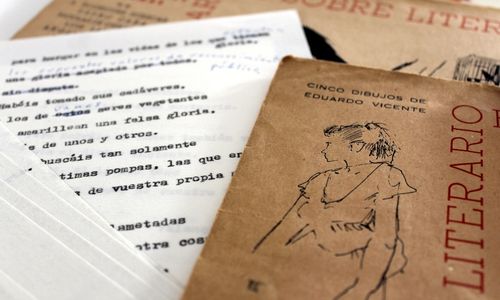 SOBRE LITER
para borrar en las vidas de los que tienen
gloria,
una gloria aceptada por todos,
pública
sin disputa.
Habéis tomado sus cadáveres,
los de estos seres vegetantes
amarillean una falsa gloria.
de unos y otros.
buscáis tan solamente
timas pompas, las que en
s de vuestra propia
lametadas
otra cos
CINCO DIBUJOS DE
EDUARDO VICENTE
LITERARIO